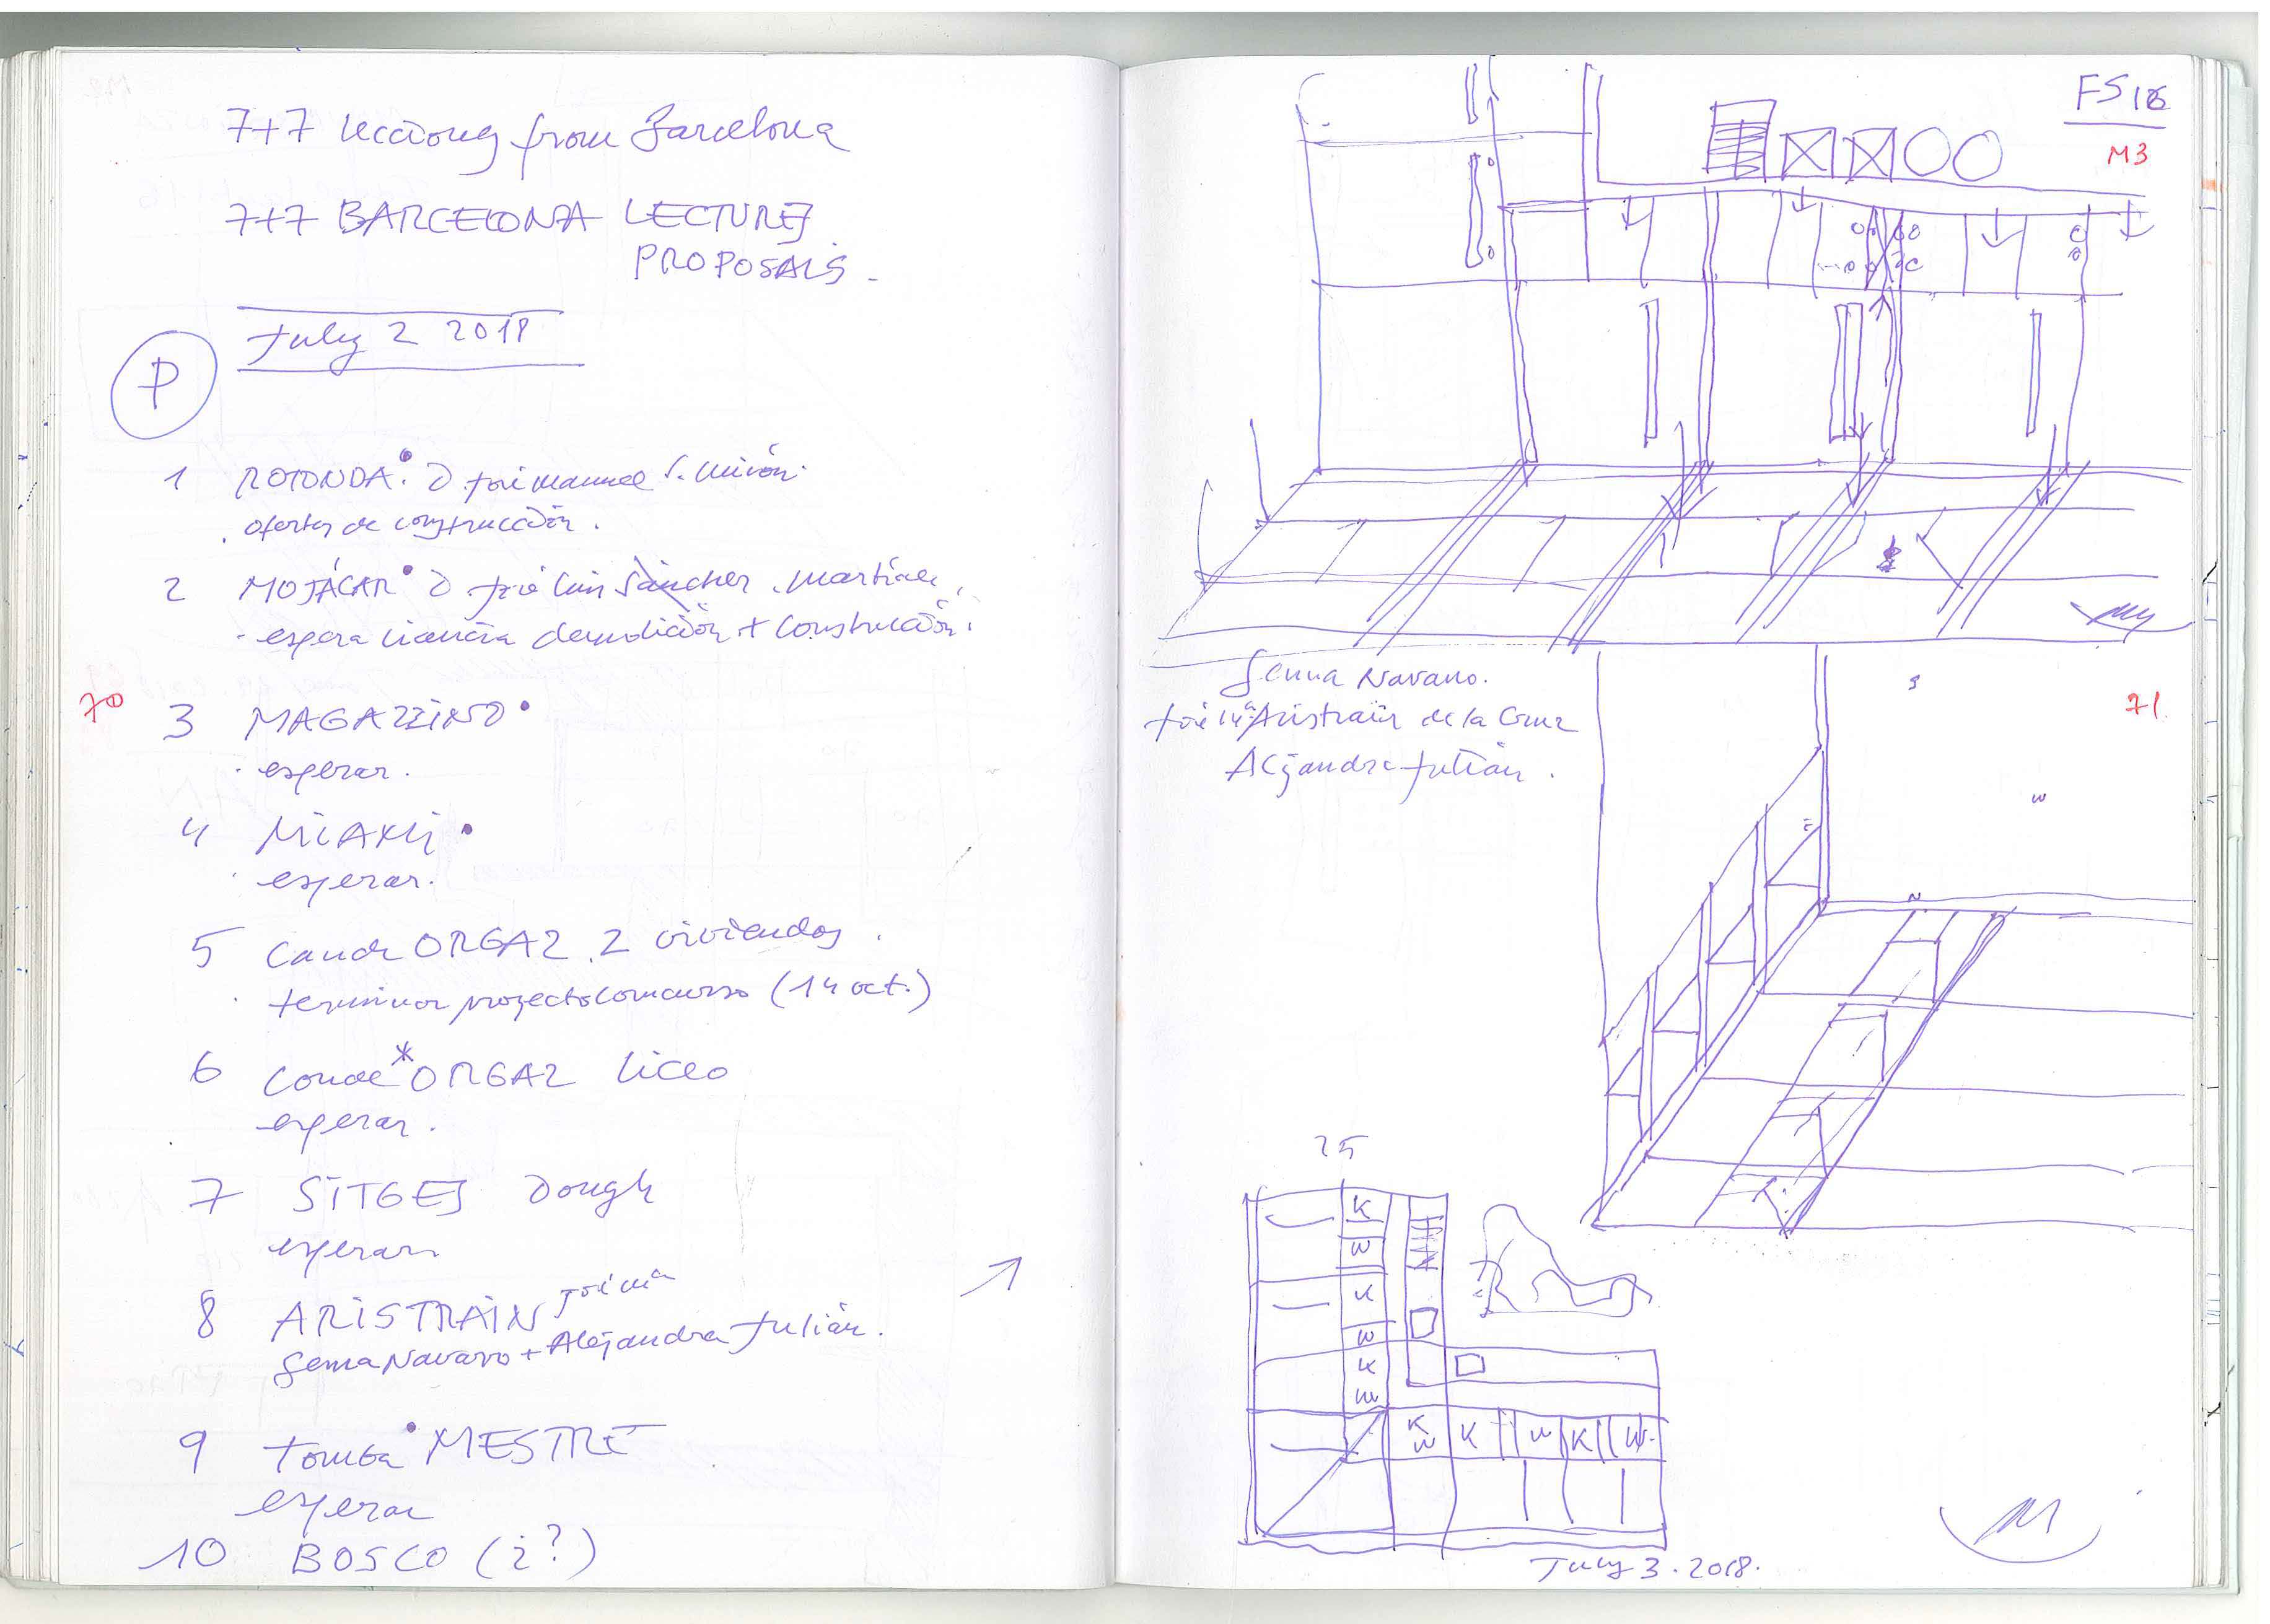 7+7 lecciong from Barcelona
7+7 BARCELONA LECTURES
PROPOSALS.
July 2 2018
P
1 ROTONDA. D José Manuel S.
ofertas de construcción.
2 MOJÁCAR D José Luis Sáncher. Martínez,
espera licencia demolición + construcción.
70
3 MAGAZZINO
esperar.
4 MIAMI
esperar.
5 Conde ORGAZ. 2 viviendas.
terminar proyecto concurso (14 oct.)
6 Conde * ORGAZ Liceo
esperar.
7 SITGES Dough
esperar
8 ARISTRAIN José Mª
Gema Navarro + Alejandra Julián.
9 Tomba MESTRE
esperar
10 BOSCO (¿?)
FS 18
M3
Gema Navarro.
José Mª Aristrain de la Cruz
Alejandra Julián.
71.
S
W
E
N
25
K
W
K
W
K
W
K
W
K W K W
M
July 3. 2018.